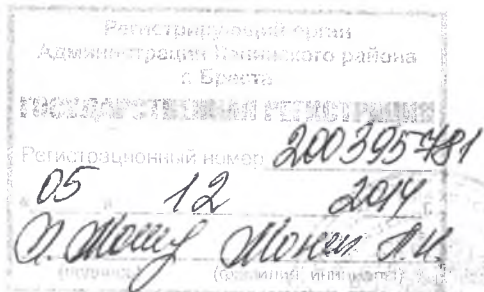 Регистрирующий орган
Администрация Ленинского района
г. Бреста
ГОСУДАРСТВЕННАЯ РЕГИСТРАЦИЯ
Регистрационный номер 200395781
" 05 " 12 2014 г.
(подпись) (фамилия, инициалы)